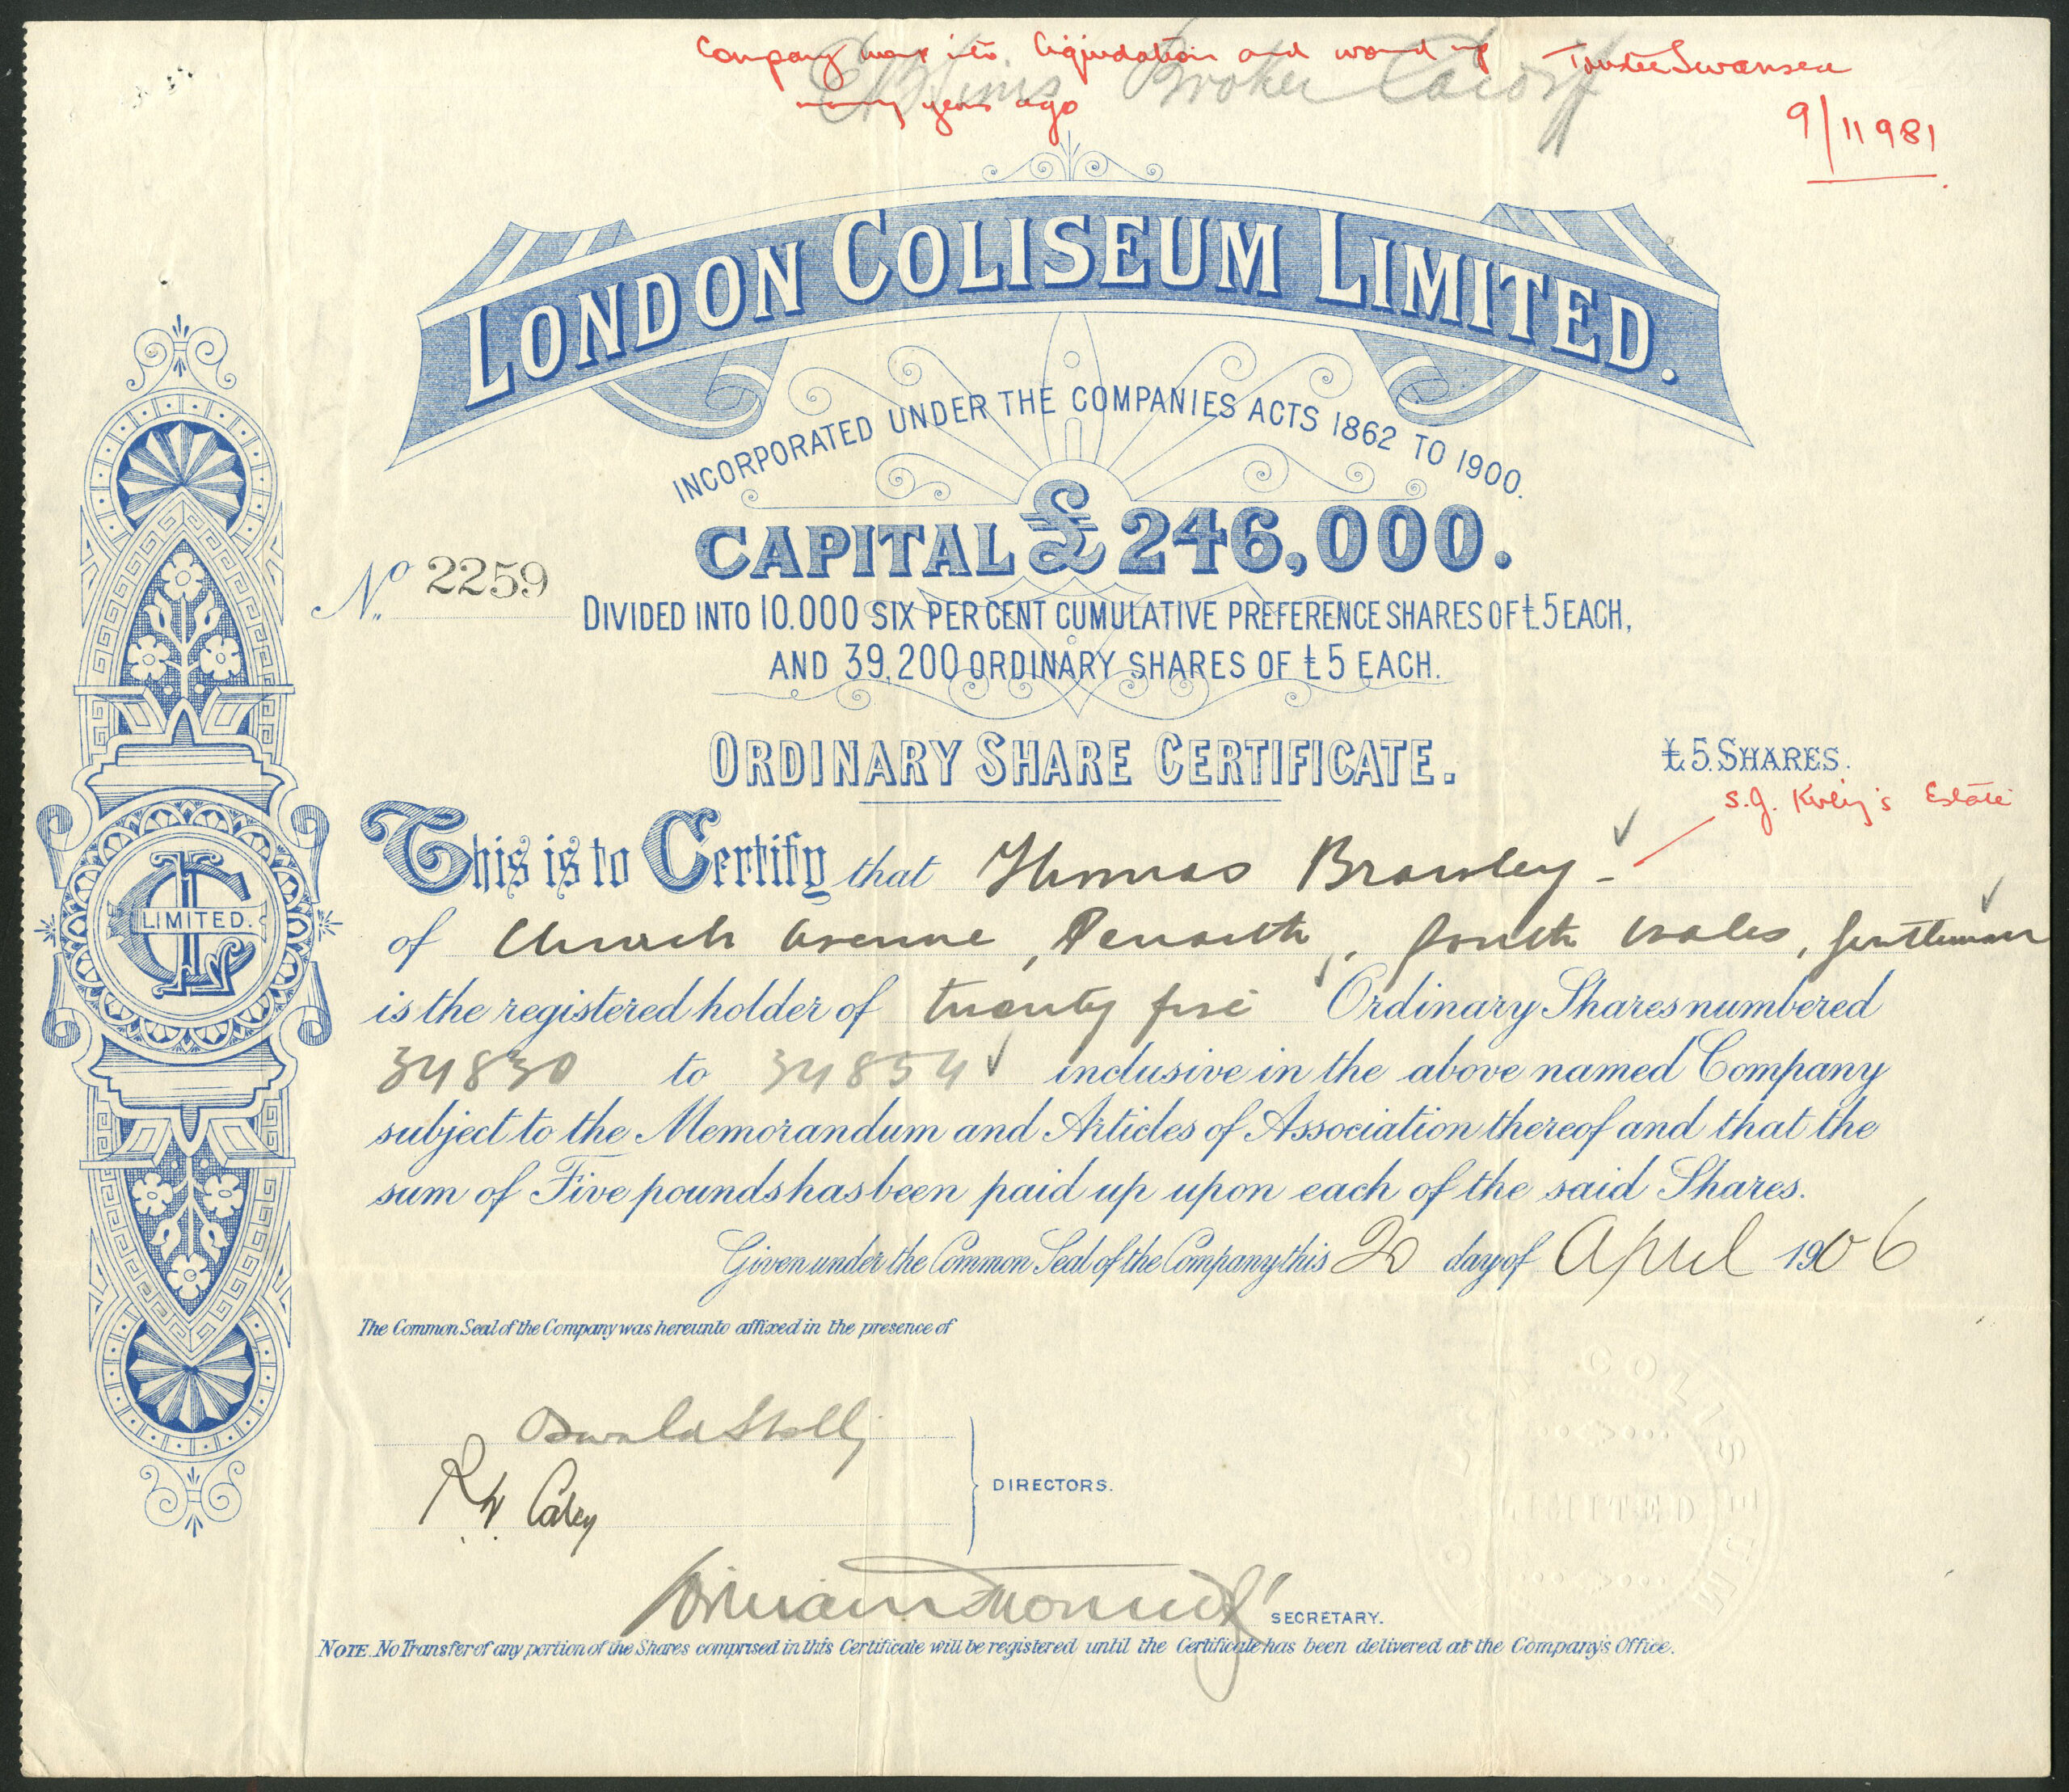 Company went into liquidation and wound up Trustee Swansea
many years ago
Broker Cardiff
9/11 981
LONDON COLISEUM LIMITED.
INCORPORATED UNDER THE COMPANIES ACTS 1862 TO 1900.
CAPITAL £246,000.
No. 2259
DIVIDED INTO 10.000 SIX PER CENT CUMULATIVE PREFERENCE SHARES OF £5 EACH,
AND 39,200 ORDINARY SHARES OF £5 EACH.
ORDINARY SHARE CERTIFICATE.
£5 SHARES.
S.J. Estate
This is to Certify that Thomas Brawley
of Church Avenue, Penarth, South Wales, Gentleman
is the registered holder of twenty five Ordinary Shares numbered
34830 to 34854 inclusive in the above named Company
subject to the Memorandum and Articles of Association thereof and that the
sum of Five pounds has been paid up upon each of the said Shares.
Given under the Common Seal of the Company this 20 day of April 1906
LIMITED.
The Common Seal of the Company was hereunto affixed in the presence of
Oswald Stoll
R W Carey
DIRECTORS.
COLISEUM
LIMITED
SECRETARY.
NOTE. No Transfer of any portion of the Shares comprised in this Certificate will be registered until the Certificate has been delivered at the Company's Office.